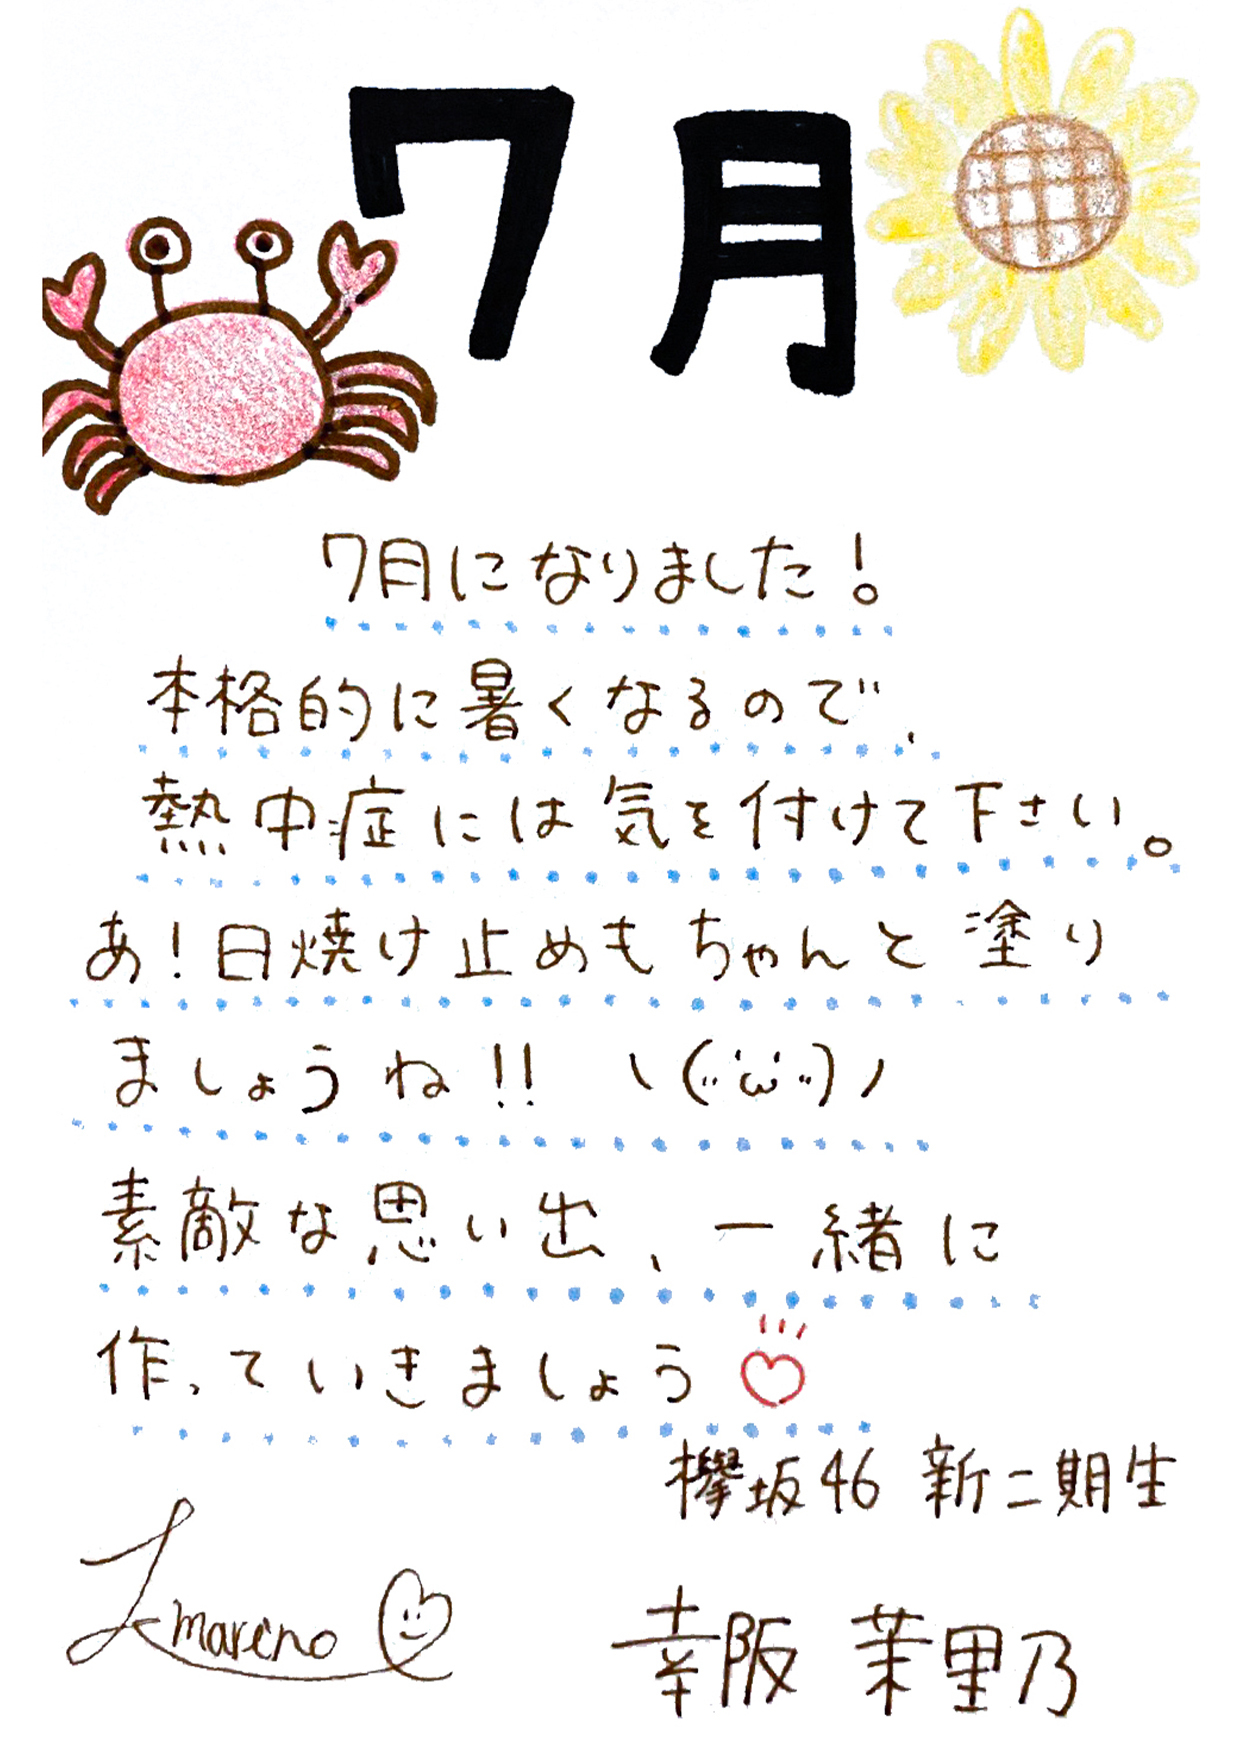 7月
7月になりました！
本格的に暑くなるので、
熱中症には気を付けて下さい。
あ！日焼け止めもちゃんと塗り
ましょうね!! ヽ(¨̈ 'ω' ¨̈)ノ
素敵な思い出、一緒に
作っていきましょう♡
欅坂46 新二期生
mareno
幸阪 茉里乃